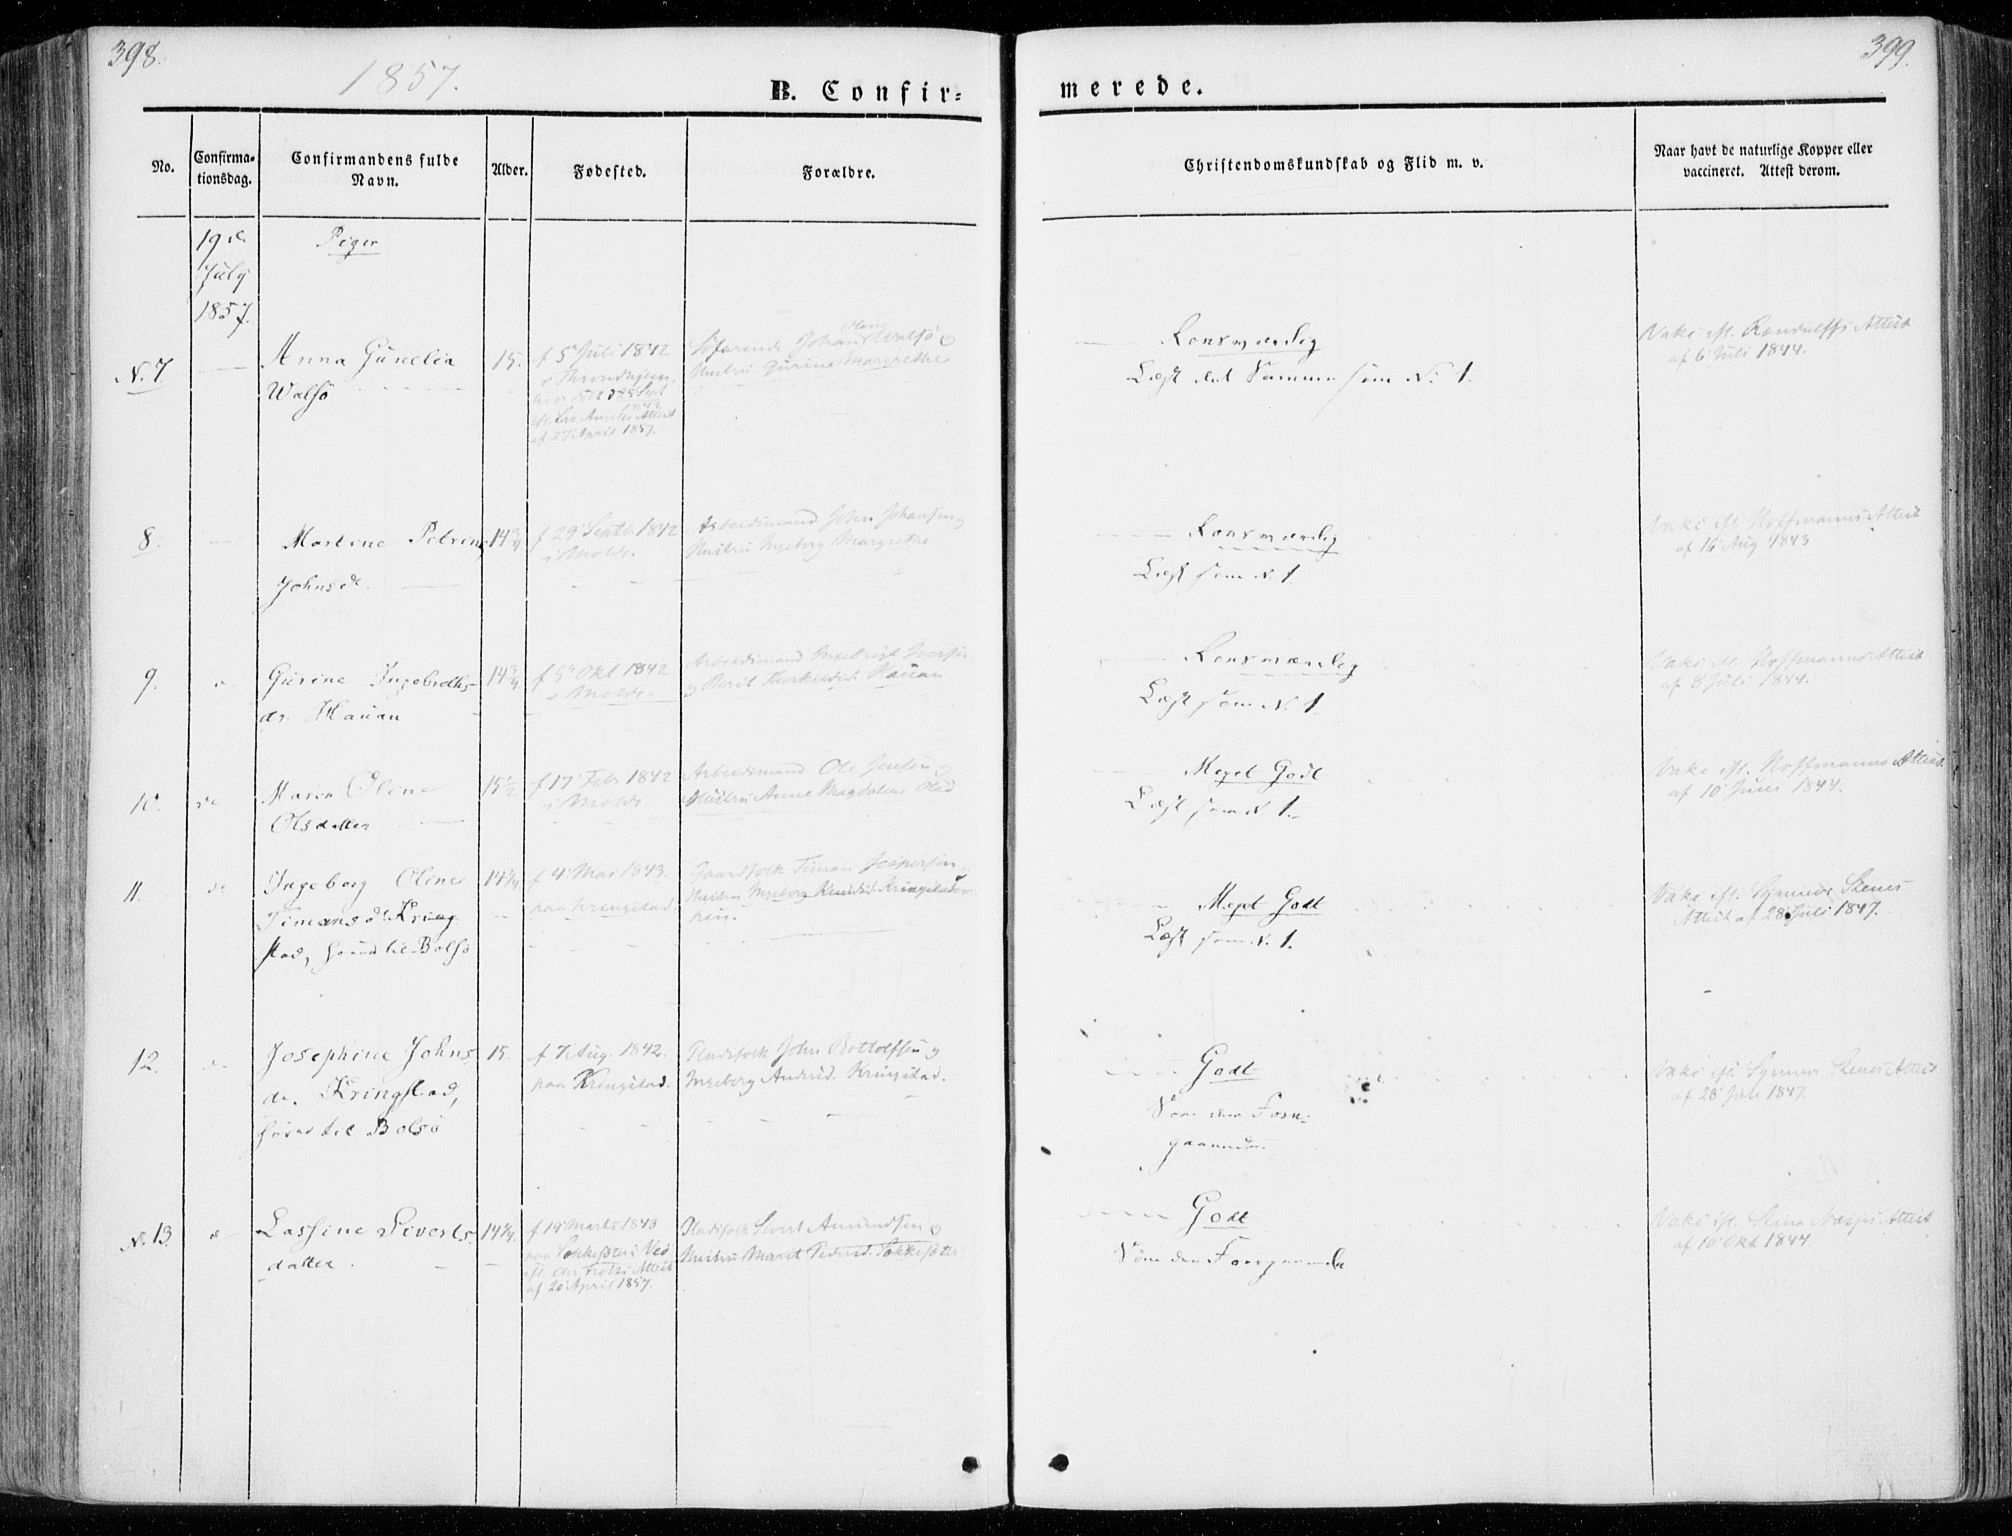 398.
1857.
B. Confir=
merede.
399.
No.
Confirma-
tionsdag.
Confirmandens fulde
Navn.
Alder.
Fødested.
Forældre.
Christendomskundskab og Flid m. v.
Naar havt de naturlige Kopper eller
vaccineret. Attest derom.
19de
July
1857.
Piger
N. 7
Anna Gunelia
Walsö
15.
f 5 Juli 1842
i Throndhjem,
af 27 April 1857.
Söfarende Johan Walsö og
Hustru Gurine Margrethe
Roesværdig
Læst det Samme som N. 1.
Vakc efl. Attest
af 6 Juli 1844.
8.
Martine Petrine
Johnsdr.
14 3/4
f 29 Septb 1842
i Molde.
Arbeidsmand John Johansen og
Hustru Ingeborg Margrethe
Roesværdig
Læst som N. 1
Vakc efl. Hoffmanns Attest
af 16 Aug 1843
9.
Gurine Ingebretts-
dr. Hauan
14 3/4
f 5 Okt 1842
i Molde.
Arbeidsmand Ingebrigt Iversen
og Berit Thorkildsd. Hauan
Roesværdig
Læst som N. 1
Vakc efl. Hoffmanns Attest
af 8 Juli 1844.
10.
de
Maren Oline
Olsdatter
15 1/2
f 17 Feb 1842
i Molde.
Arbeidsmand Ole Jensen og
Hustru Anne Magdalene Olsd
Meget Godt
Læst som N. 1.
Vakc efl. Hoffmanns Attest
af 10 Juni 1844.
11.
de
Ingeborg Oline
Timansdr Kring-
stad, hörer til Bolsö
14 1/4
f 4 Mai 1843.
paa Kringstad.
Gaardfolk Timan Jespersen og
Hustru Ingeborg Knudsd. Kringstad
Meget Godt
Læst som N. 1.
Vakc efl. Synneve Stenes
Attest af 28 Juli 1847.
12.
Josephine Johns-
dr. Kringstad,
hörer til Bolsö
15.
f 7 Aug. 1842.
paa Kringstad.
Pladsfolk John Rottolfsen og
Ingeborg Andersd. Kringstad.
Godt
Som den Fore-
gaaende.
Vakc efl. Synneve Stenes Attest
af 28 Juli 1847.
N. 13.
Lassine Siverts-
datter.
14 1/4.
f 19 Marts 1843
af 20 April 1857.
Pladsfolk Sivert Amundsen og
Hustru Marit Pedersd.
Godt
Som den Foregaaende
Vakc efl. Attest
af 10 Okt 1844.